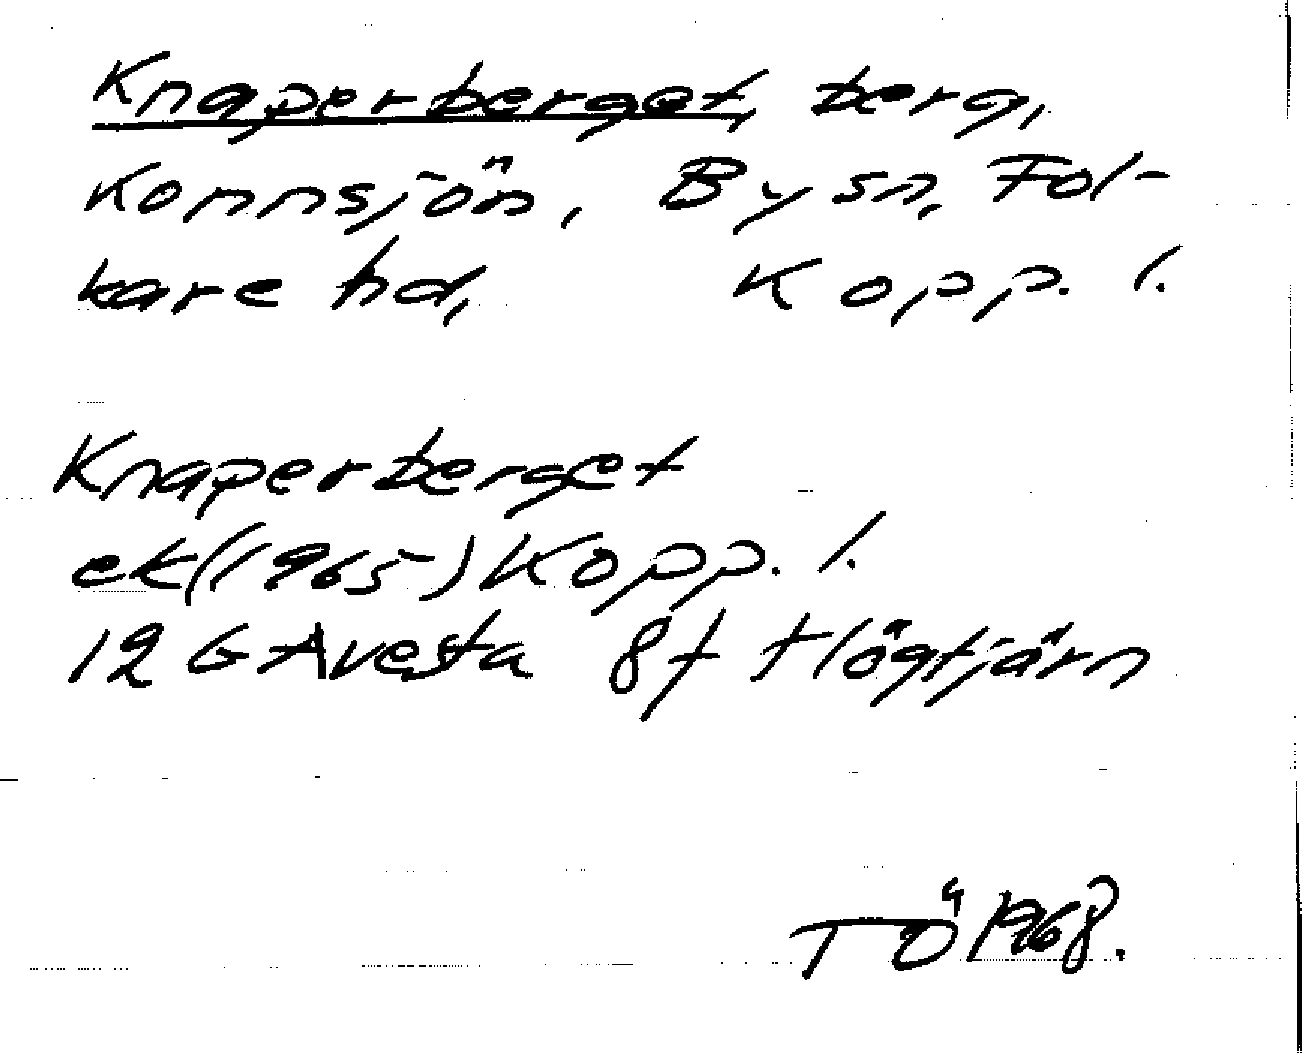 Knaperberget, berg,
Konnsjön, By sn, Fol-
kare hd, Kopp. l.
Knaperberget
ek (1965) Kopp. l.
12 G Avesta 8f Högtjärn
TÖ 1968.